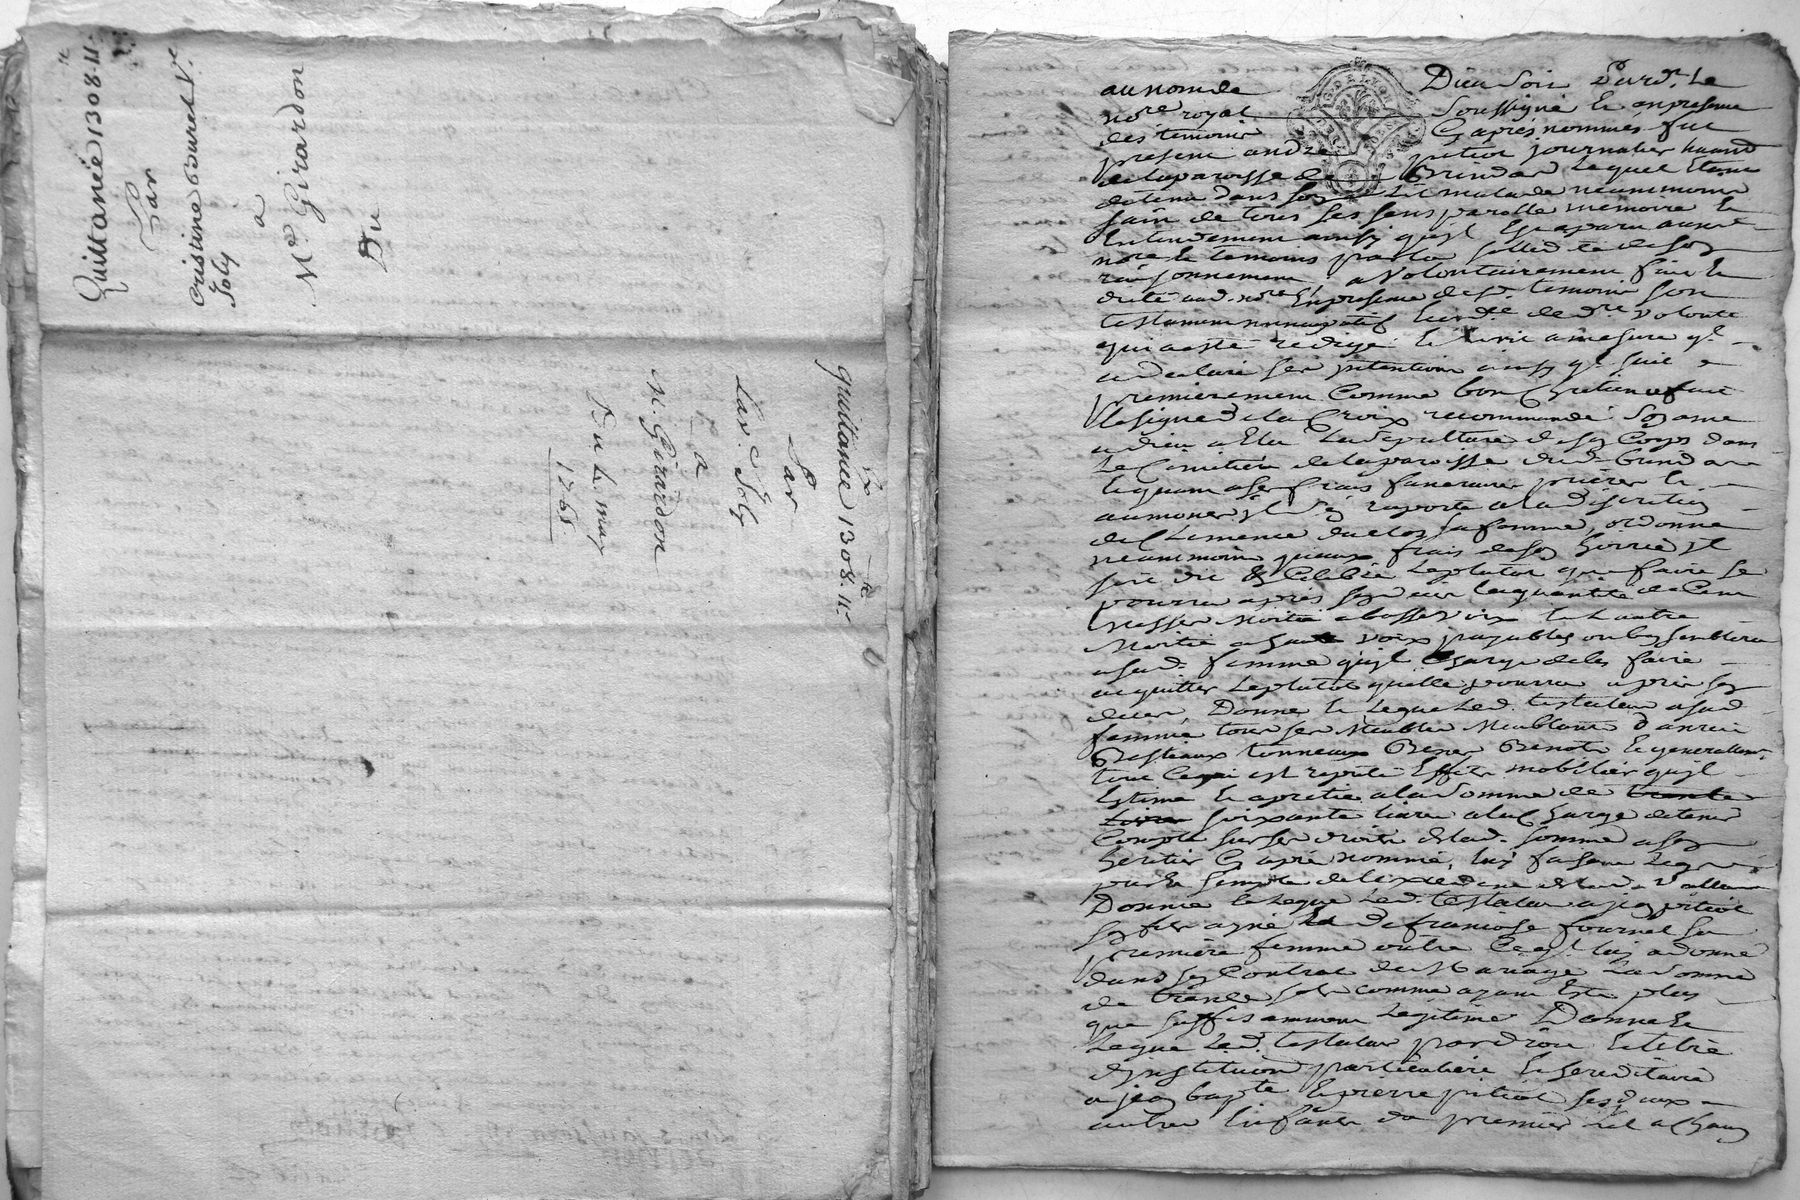 Quittance 1308 ₶ 11 s
Par
Cristine Burel Ve
Joly
a
Me Girardon
Du
quittance 1308 ₶ 11 s
Par
La ve Joly
a
M. Girardon
Du 4 may
1768
au nom de Dieu soit Pard.t Le
nore royal soussigné Et en presence
des temoins Cy apres nommés fut
present andré pitiot journalier habitant
de la paroisse de Brindas Lequel Etant
detenu dans son Lit malade neanmoins
sain de tous ses sens parolle memoire Et
Entendement ainsy qu'yl Est aparu aux
nore Et temoins par la solidité de son
raisonnement a volontairement fait Et
dicté aud. nore En presence desd. temoins son
testament nuncupatif Et ord.ce de d.re volonté
qui a esté redigé Et Ecrit a mesure q.l
a declaré ses intentions ainsy q.l suit
premierement Comme bon Chretien a fait
Le signe de la Croix recommandé son ame
a dieu a Elu La sepulture de son Corps dans
Le Cimetiere de la paroisse dud. brindas
Et quant a ses frais funeraires prieres Et
aumones yl s'en raporte a la discretion
de Clemence duclos sa femme, ordonne
neanmoins qu'aux frais de son hoirie yl
soit dit & Celebré Le plutot que faire se
pourra apres son deces la quantité de Cent
Messes Moitié a basse voix Et L'autre
Moitié a haute voix payables ou bon semblera
a sad. femme qu'yl Charge de les faire
acquitter Le plutot qu'elle pourra apres son
deces, Donne Et Legue Led. testateur a sad.
femme tous ses Meubles Meublants danrées
Bestiaux tonneaux Et generallement
tout Ce qui est reputé Effets mobiliers qu'yl
Estime Et apretie a la somme de trente
Livres soixante Livres a la Charge de tenir
Compte sur ses droits de lad. somme a son
heritier Cy apres nommé, luy faisant Legs
pur Et simple de l'excedent de lad. valleur
Donne Et Legue Led. testateur a pitiot
son fils ayné de françoise fournel sa
premiere femme outre Ce q.l luy a donné
dans son Contrat de Mariage La somme
de trente sols comme ayant Esté plus
que suffisamment Legitimé Donne Et
Legue Led. testateur par droit Et titre
d'ynstitution particuliere Et hereditaire
a jean bapte Et pierre pitiot ses deux
autres Enfants du premier Lit a Chacun